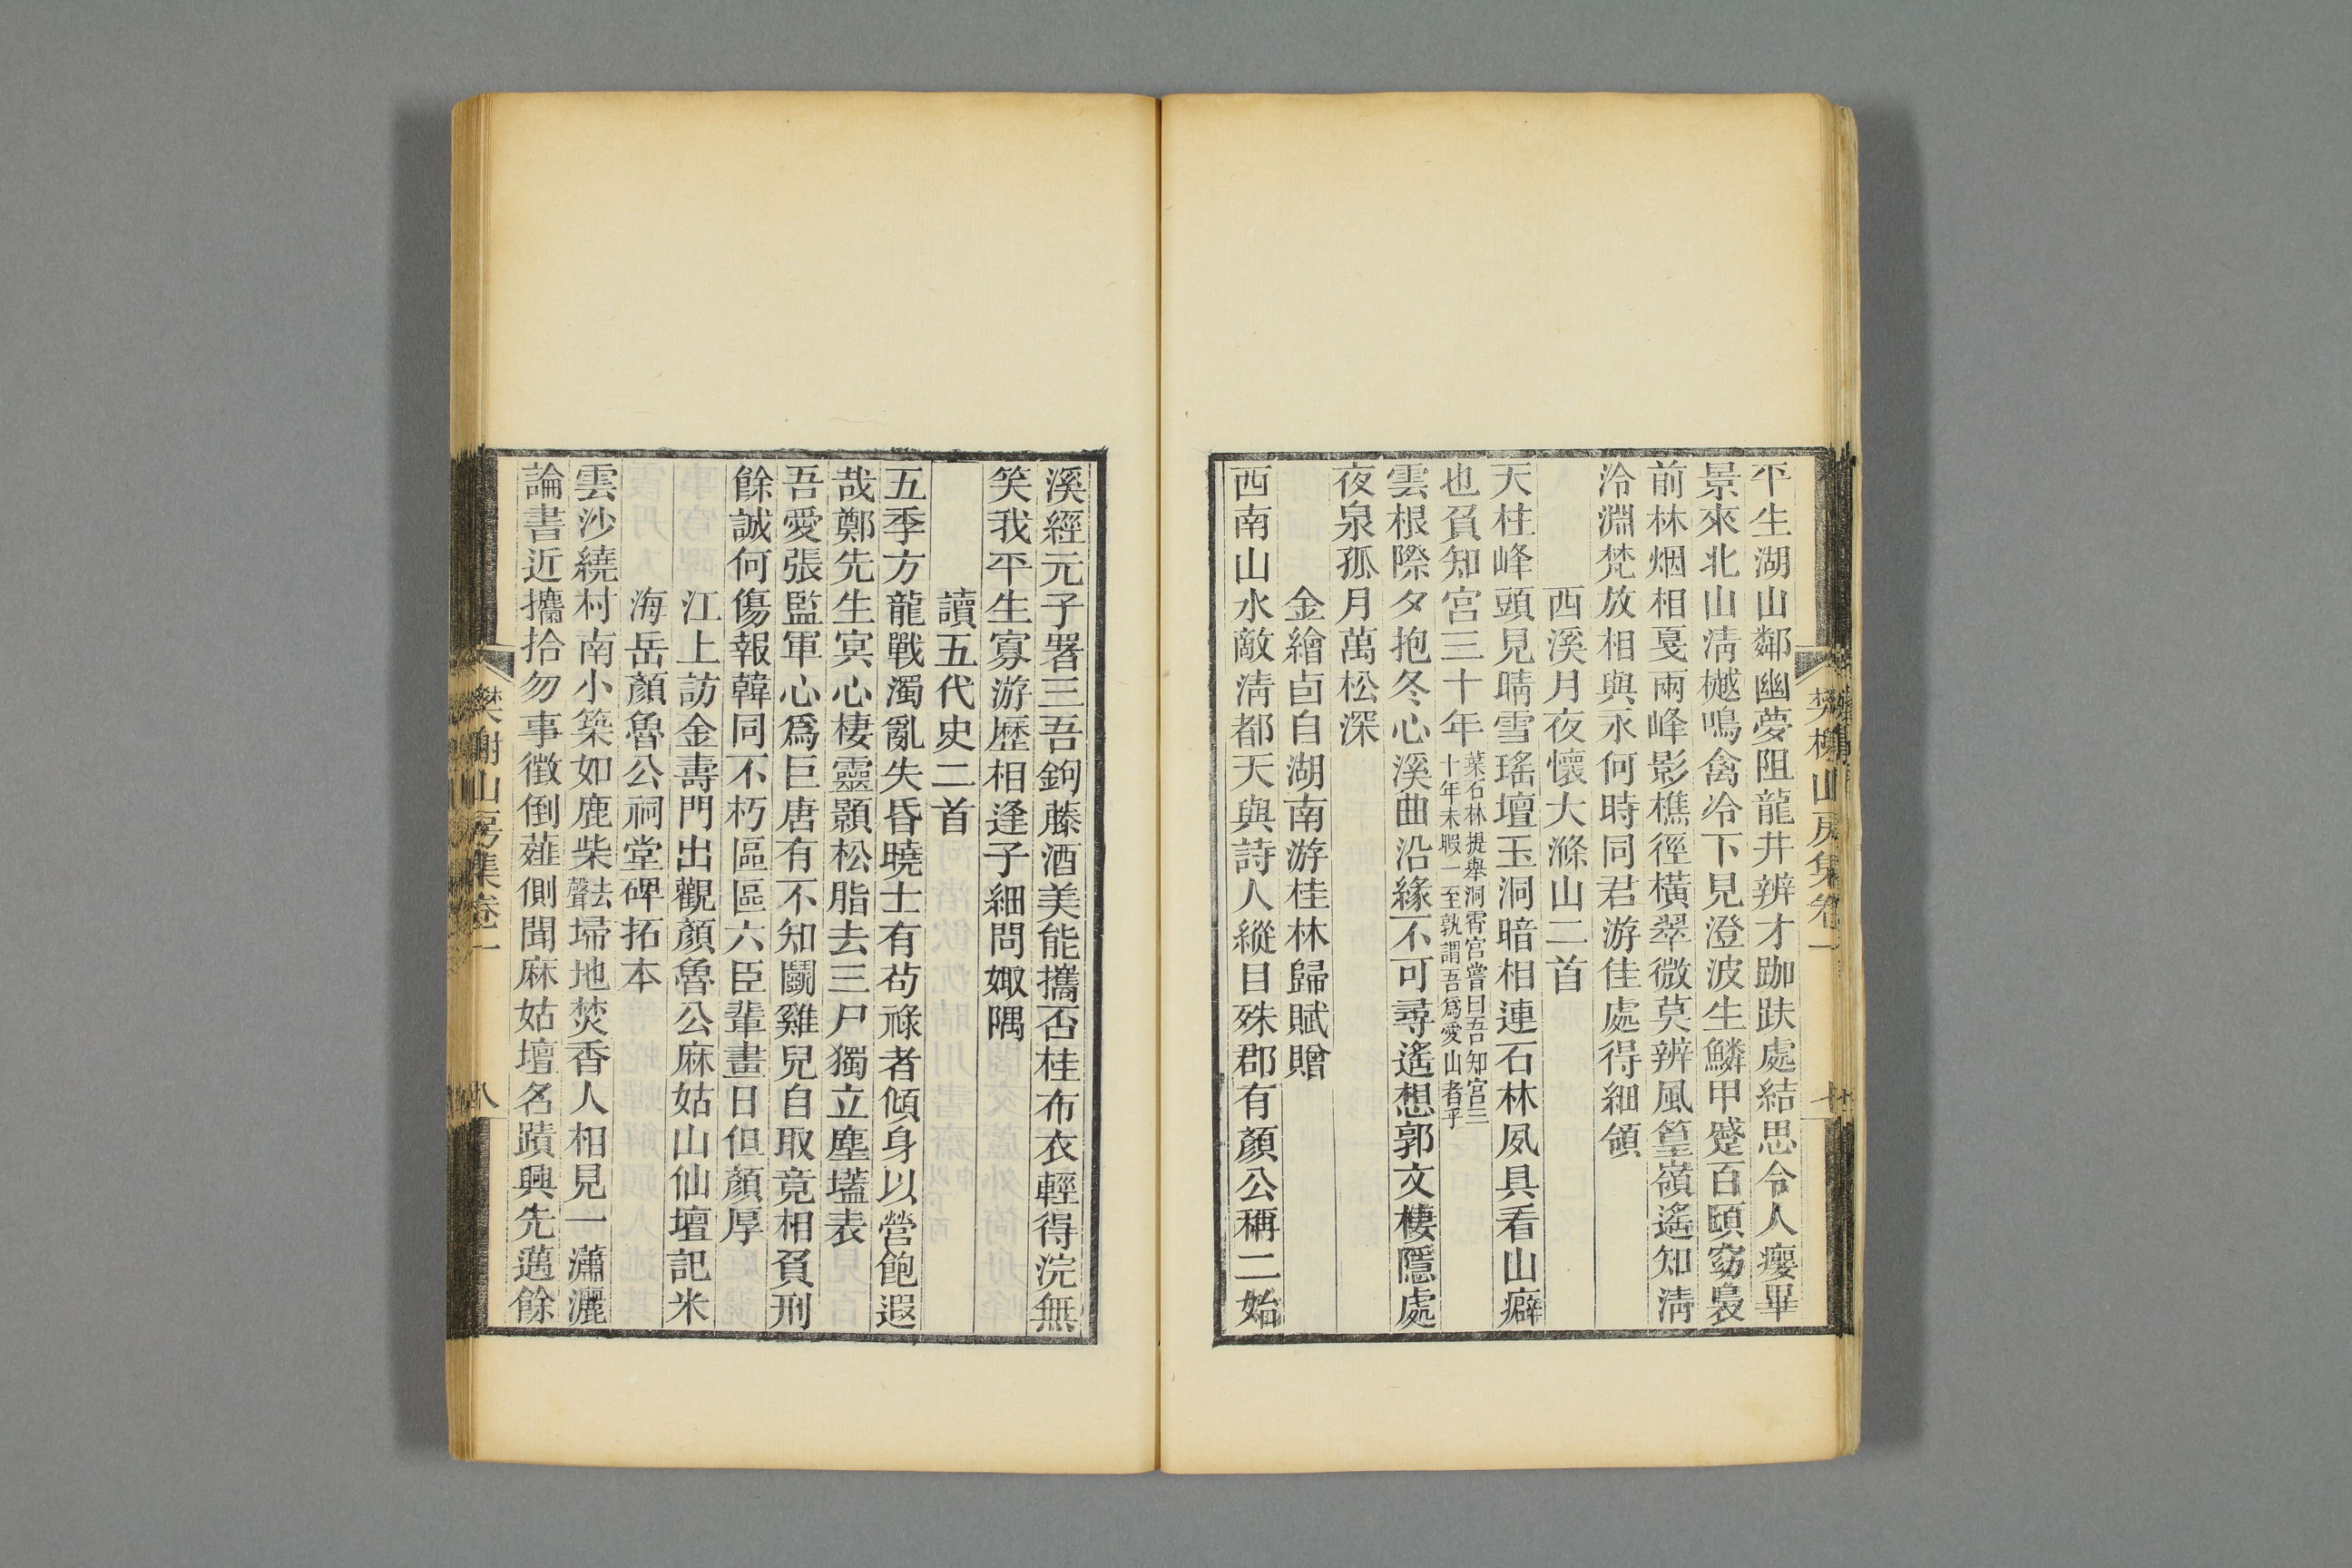 平生湖山鄰幽夢阻龍井辨才跏趺處結思令人癭畢
景來北山淸樾鳴禽冷下見澄波生鱗甲蹙百頃窈裊
前林烟相戛兩峰影樵徑橫翠微莫辨風篁嶺遙知淸
泠淵梵放相與永何時同君游佳處得細領
西溪月夜懷大滌山二首
天柱峰頭見晴雪瑤壇玉洞暗相連石林夙具看山癖
也負知宮三十年葉石林提舉洞霄宮嘗曰吾知宮三十年未暇一至孰謂吾爲愛山者乎
雲根際夕抱冬心溪曲沿緣不可尋遙想郭文棲隱處
夜泉孤月萬松深
金繪卣自湖南游桂林歸賦贈
西南山水敵淸都天與詩人縱目殊郡有顏公稱二始
樊榭山房集卷一
七
溪經元子署三吾鉤藤酒美能攜否桂布衣輕得浣無
笑我平生寡游歷相逢子細問娵隅
讀五代史二首
五季方龍戰濁亂失昏曉士有苟祿者傾身以營飽遐
哉鄭先生冥心棲靈顥松脂去三尸獨立塵壒表
吾愛張監軍心爲巨唐有不知鬭雞兒自取竟相負刑
餘誠何傷報韓同不朽區區六臣輩晝日但顏厚
江上訪金壽門出觀顏魯公麻姑山仙壇記米
海岳顏魯公祠堂碑拓本
雲沙繞村南小築如鹿柴㲈埽地焚香人相見一瀟灑
論書近攟拾勿事徵倒薤側聞麻姑壇名蹟興先邁餘
樊榭山房集卷一
八